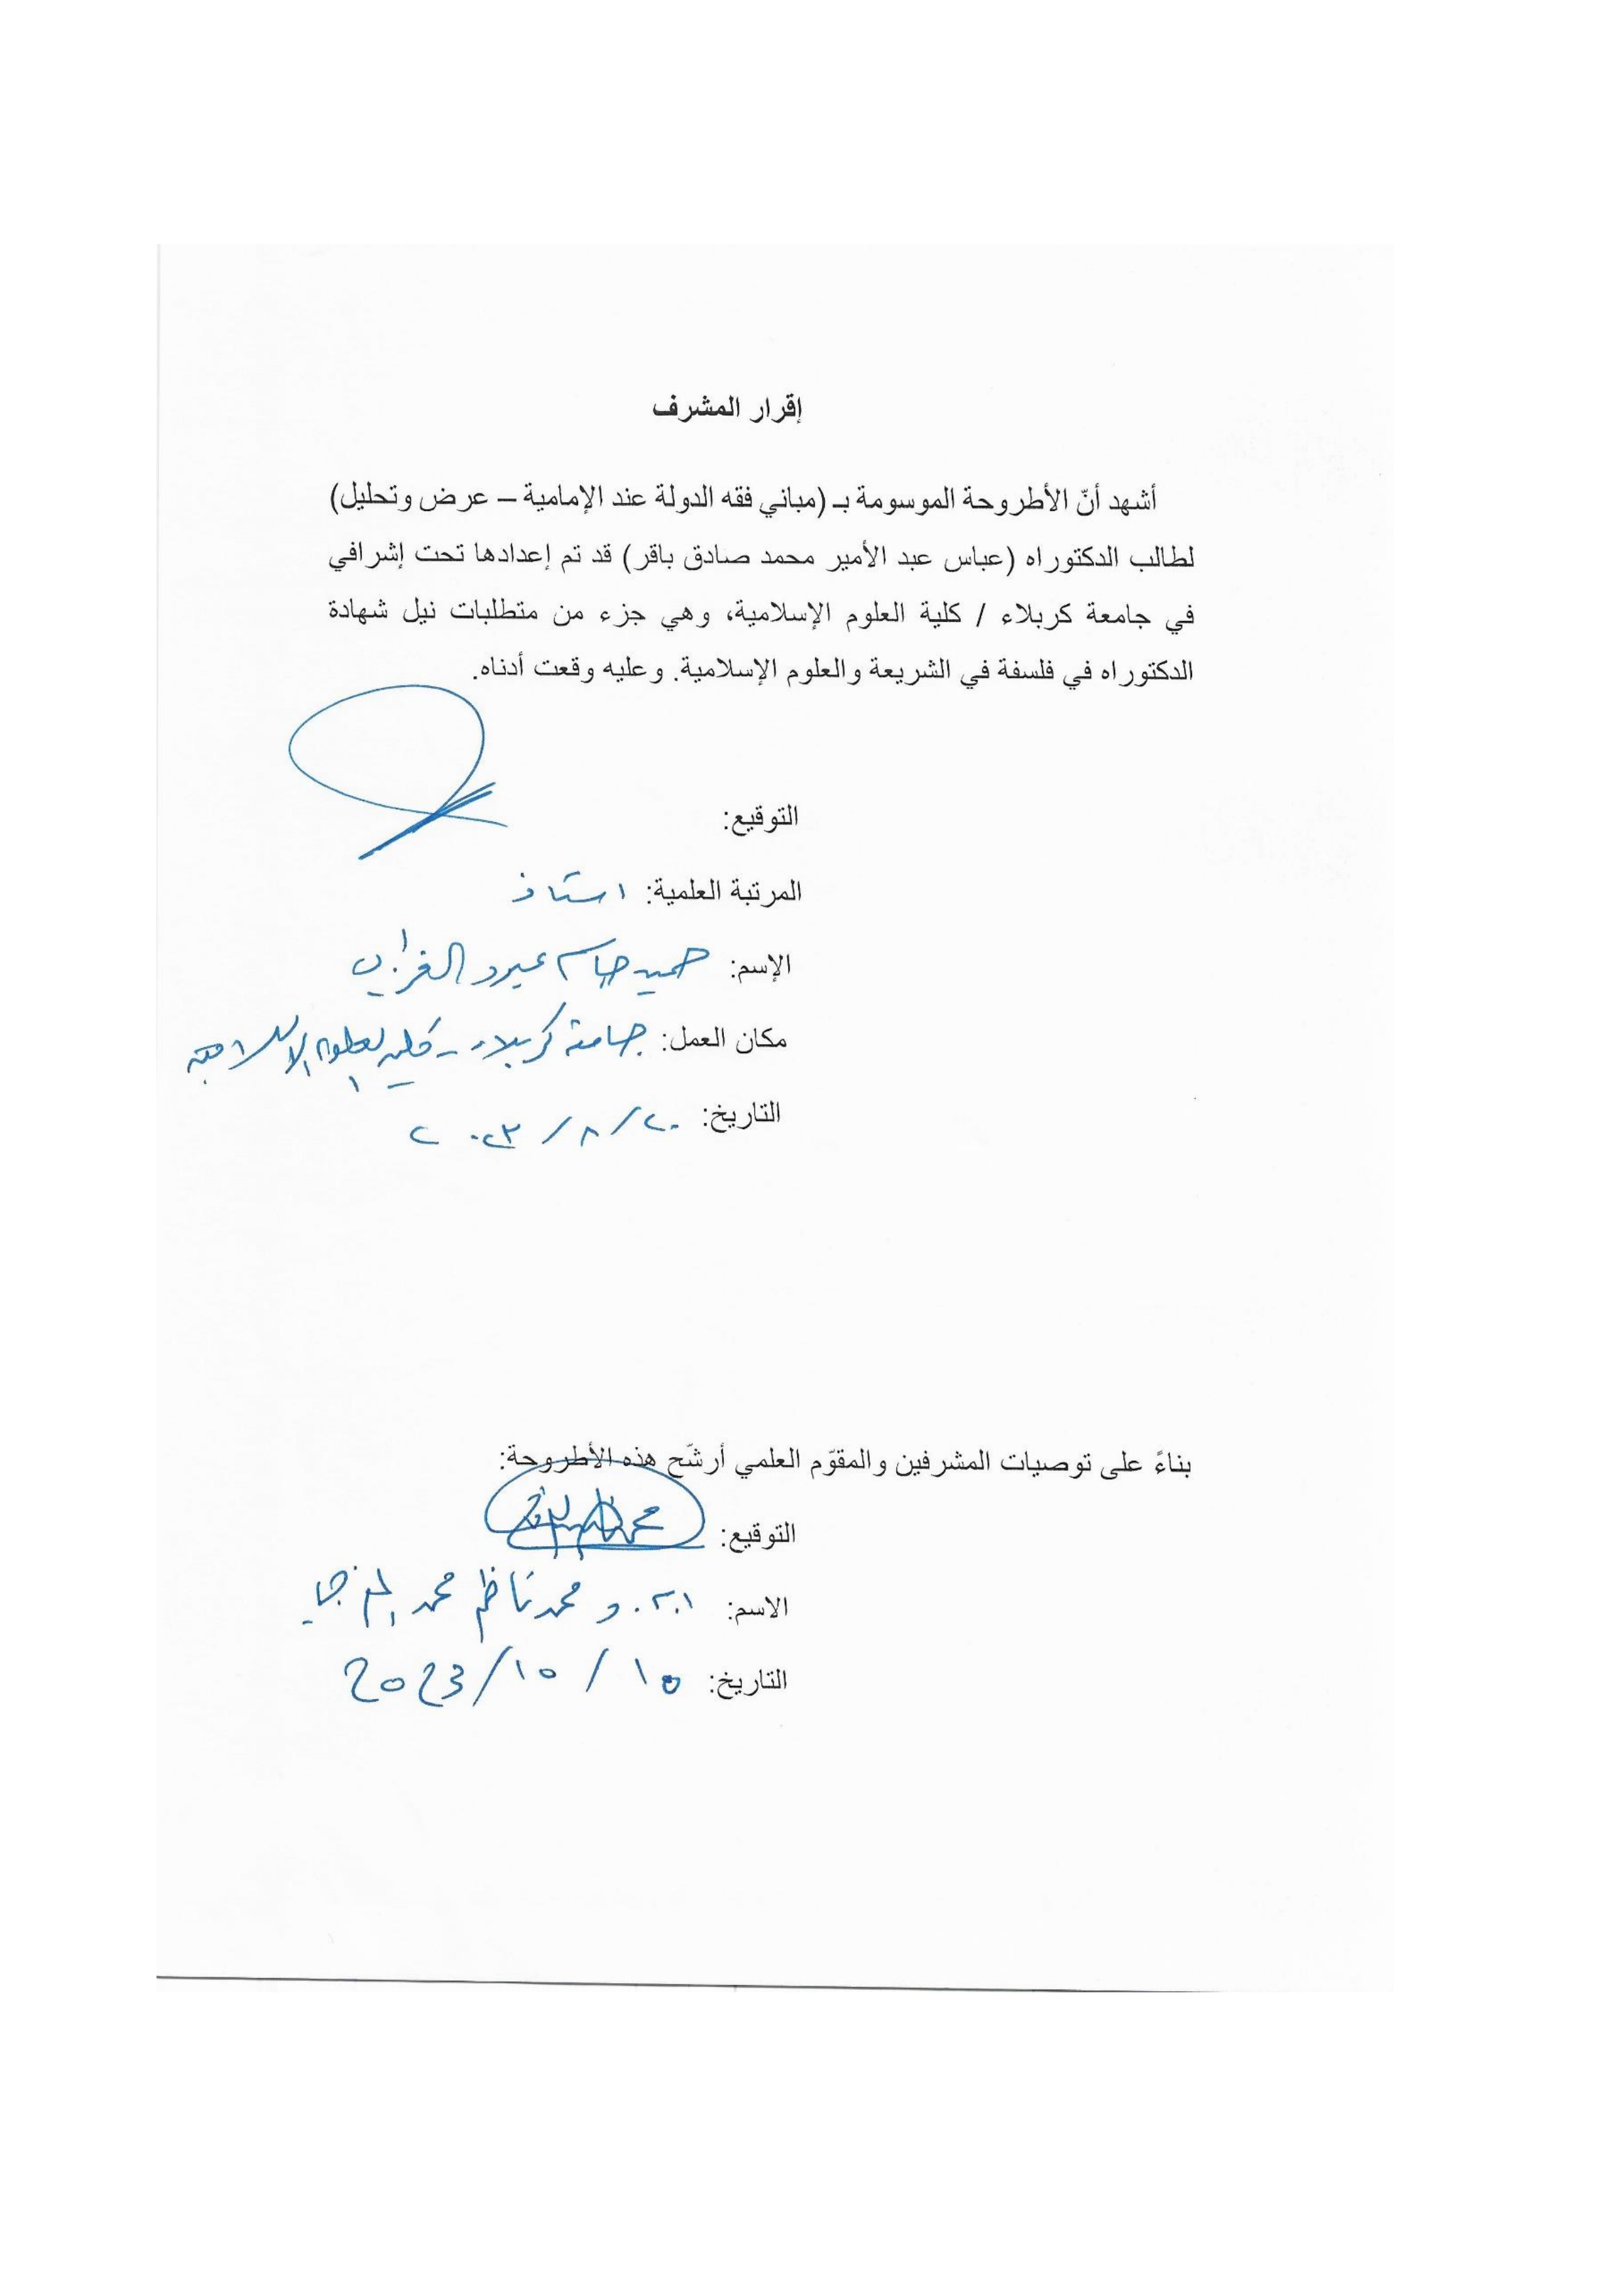 إقرار المشرف
أشهد أنّ الأطروحة الموسومة بـ (مباني فقه الدولة عند الإمامية – عرض وتحليل)
لطالب الدكتوراه (عباس عبد الأمير محمد صادق باقر) قد تم إعدادها تحت إشرافي
في جامعة كربلاء / كلية العلوم الإسلامية، وهي جزء من متطلبات نيل شهادة
الدكتوراه في فلسفة في الشريعة والعلوم الإسلامية. وعليه وقعت أدناه.
التوقيع:
المرتبة العلمية: استاذ
الإسم: حميد جاسم عبود الغرابي
مكان العمل: جامعة كربلاء - كلية العلوم الاسلامية
التاريخ: ٢٠ / ٨ / ٢٠٢٣
بناءً على توصيات المشرفين والمقوّم العلمي أرشّح هذه الأطروحة:
التوقيع:
الاسم: ا.م.د محمد ناظم محمد
التاريخ: 10 / 10 / 2023